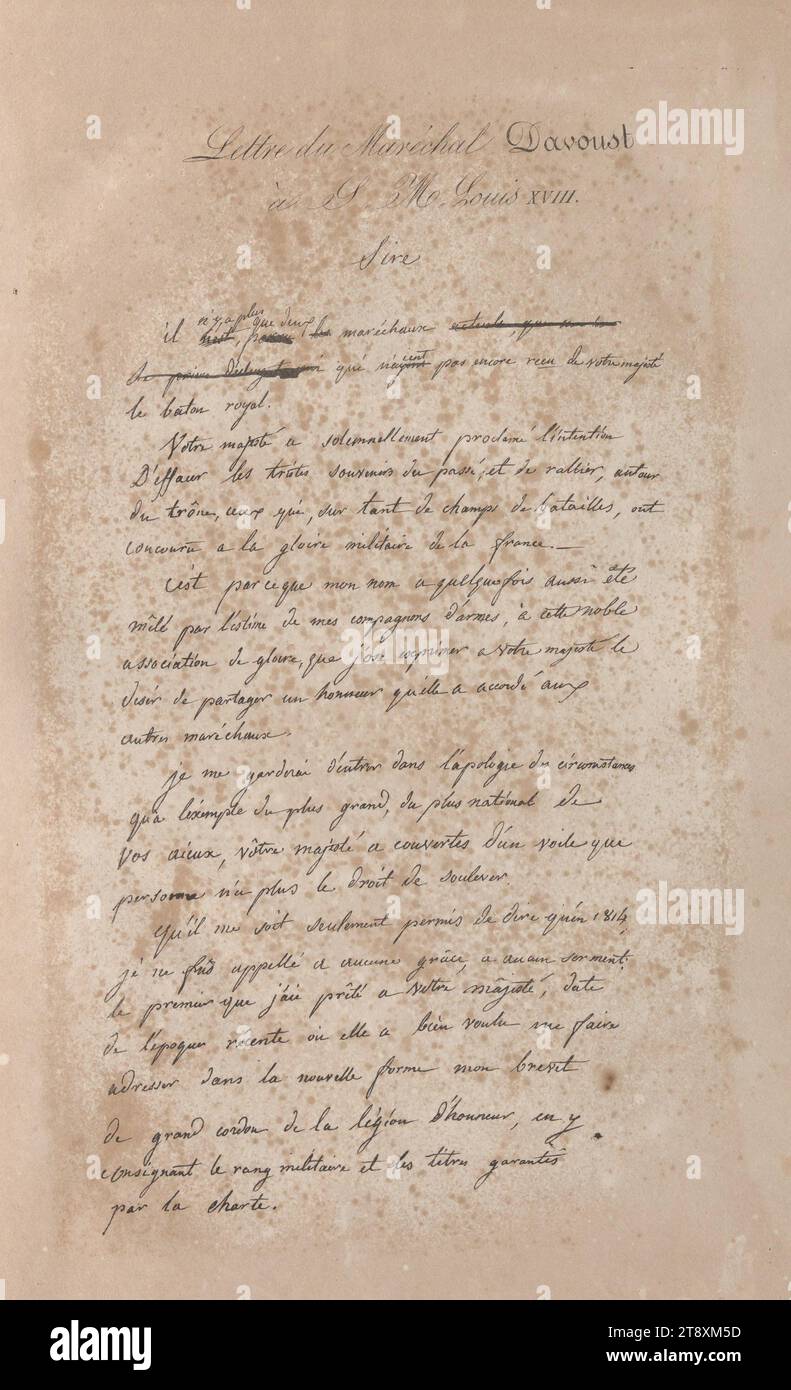 Lettre du Maréchal Davoust
à S. M. Louis XVIII.
Sire
il n'y a plus que deux maréchaux
qui n'ayent pas encore recu de votre majesté
le baton royal.
Votre majesté a solemnellement proclamé l'intention
D'effacer les tristes souvenirs du passé, et de rallier, autour
du trône, ceux qui, sur tant de champs de batailles, ont
concouru a la gloire militaire de la france.—
C'est parceque mon nom a quelque fois aussi été
mêlé par l'estime de mes compagnons d'armes, à cette noble
association de gloire, que j'ose exprimer a votre majesté le
desir de partager un honneur qu'elle a accordé aux
autres maréchaux.
je me garderai d'entrer dans l'apologie des circonstances
qu'a l'exemple du plus grand, du plus national de
Vos aieux, vôtre majesté a couvertes d'un voile que
personne n'a plus le droit de soulever.
qu'il me soit seulement permis de dire qu'en 1814,
je ne fus appellé a aucune grâce, a aucun serment;
le premier que j'aie prêté a votre majesté, date
de l'époque récente où elle a bien voulu me faire
adresser dans la nouvelle forme mon brevet
de grand cordon de la légion d'honneur, en y
consignant le rang militaire et les titres garantis
par la charte.
alamy
Image ID: 2T8XM5D
www.alamy.com